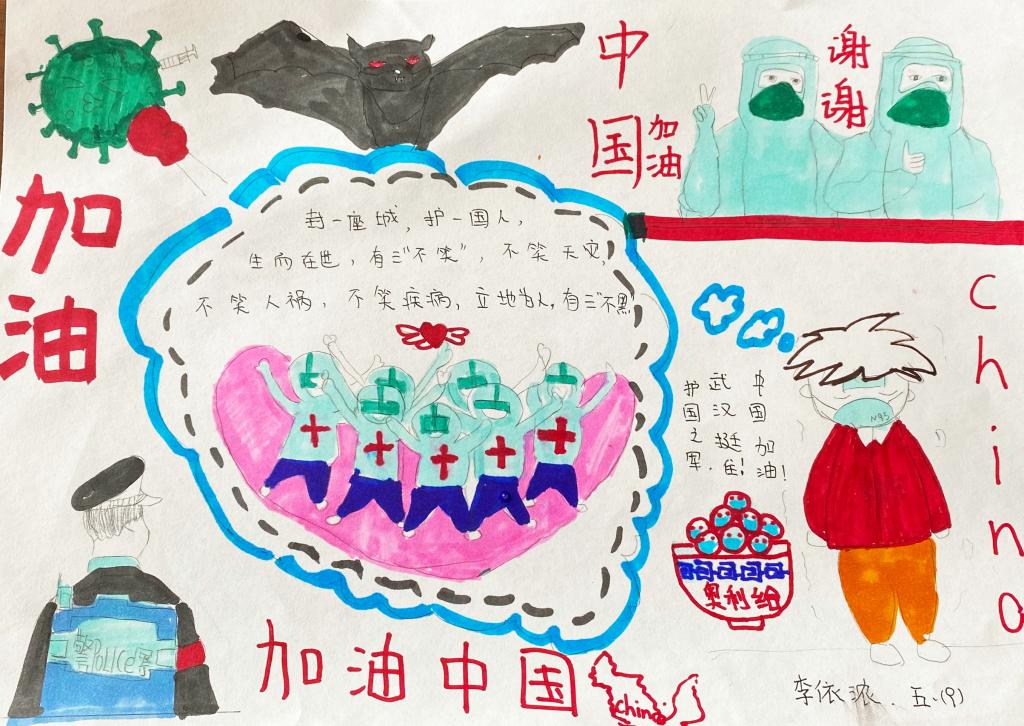 中
国
加油
谢
谢
加
油
封一座城，护一国人，
生而在世，有三“不笑”，不笑天灾，
不笑人祸，不笑疾病，立地为人，有三“不黑
China
中国加油！
武汉挺住！
护国之军．
N95
奥利给
警Police察
加油中国
china
李依浓．五．(9)